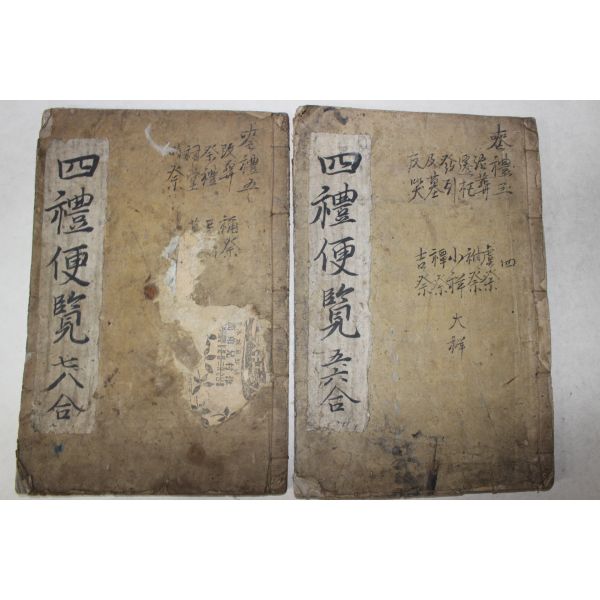 四禮便覽 五六合
喪禮三
治葬
遷柩
發引
及墓
反哭
四
虞祭
祔祭
小祥
大祥
禫祭
吉祭
四禮便覽 七八合
喪禮五
改葬
祭禮
祠堂
禰祭
祭